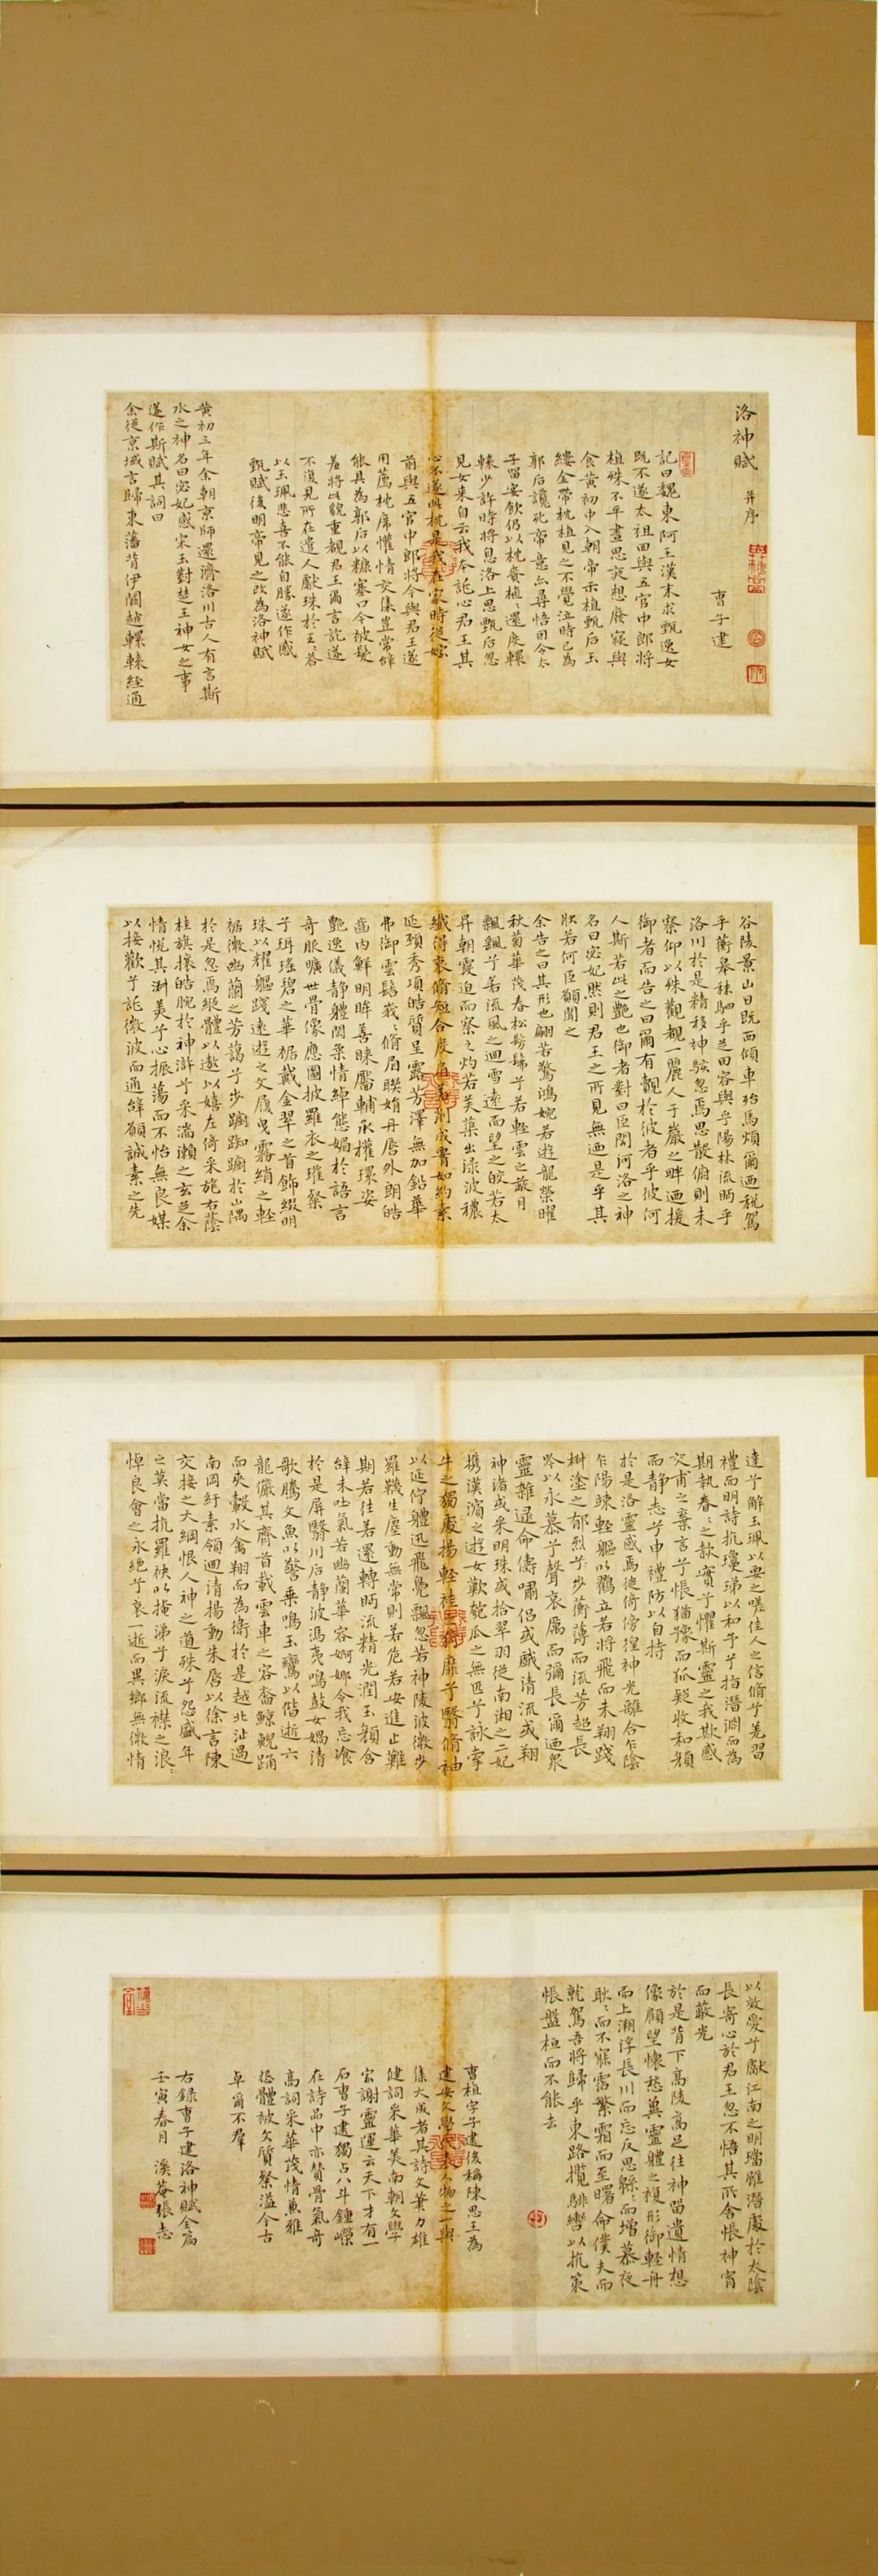 洛神賦 并序
曹子建
記曰魏東阿王漢末求甄逸女
既不遂太祖回與五官中郎將
植殊不平晝思夜想廢寢與
食黃初中入朝帝示植甄后玉
縷金帶枕植見之不覺泣時已為
郭后讒死帝意亦尋悟因令太
子留宴飲仍以枕賚植還度轘
轅少許時將息洛上思甄后忽
見女來自云我本託心君王其
心不遂此枕是我在家時從嫁
前與五官中郎將今與君王遂
用薦枕席懽情交集豈常辭
能具為郭后以糠塞口今被髮
羞將此貌重覩君王爾言訖遂
不復見所在遣人獻珠於王答
以玉珮悲喜不能自勝遂作感
甄賦後明帝見之改為洛神賦
黃初三年余朝京師還濟洛川古人有言斯
水之神名曰宓妃感宋玉對楚王神女之事
遂作斯賦其詞曰
余從京域言歸東藩背伊闕越轘轅經通
谷陵景山日既西傾車殆馬煩爾迺稅駕
乎蘅皋秣駟乎芝田容與乎陽林流眄乎
洛川於是精移神駭忽焉思散俯則未
察仰以殊觀覩一麗人于巖之畔迺援
御者而告之曰爾有覿於彼者乎彼何
人斯若此之艷也御者對曰臣聞河洛之神
名曰宓妃然則君王之所見無迺是乎其
狀若何臣願聞之
余告之曰其形也翩若驚鴻婉若遊龍榮曜
秋菊華茂春松髣髴兮若輕雲之蔽月
飄飄兮若流風之迴雪遠而望之皎若太
昇朝霞迫而察之灼若芙蕖出淥波穠
纖得衷脩短合度肩若削成署如約素
延頸秀項皓質呈露芳澤無加鉛華
弗御雲髻峩峩脩眉聯娟丹脣外朗皓
齒內鮮明眸善睞靨輔承權瓌姿
艷逸儀靜體閑柔情綽態媚於語言
奇服曠世骨像應圖披羅衣之璀粲
兮珥瑤碧之華裾戴金翠之首飾綴明
珠以耀軀踐遠遊之文履曳霧綃之輕
裾微幽蘭之芳藹兮步踟躕於山隅
於是忽焉縱體以遨以嬉左倚采旄右蔭
桂旗攘皓腕於神滸兮采湍瀨之玄芝余
情悅其淑美兮心振蕩而不怡無良媒
以接歡兮託微波而通辭願誠素之先
達兮解玉珮以要之嗟佳人之信脩兮羌習
禮而明詩抗瓊珶以和予兮指潛淵而為
期執眷眷之款實兮懼斯靈之我欺感
交甫之棄言兮悵猶豫而狐疑收和顏
而靜志兮申禮防以自持
於是洛靈感焉徙倚傍徨神光離合乍陰
乍陽竦輕軀以鶴立若將飛而未翔踐
椒塗之郁烈兮步蘅薄而流芳超長
吟以永慕兮聲哀厲而彌長爾迺眾
靈雜遝命儔嘯侶或戲清流或翔
神渚或采明珠或拾翠羽從南湘之二妃
攜漢濱之遊女歎匏瓜之無匹兮詠牽
牛之獨處揚輕袿之猗靡兮翳脩袖
以延佇體迅飛鳧飄忽若神陵波微步
羅韈生塵動無常則若危若安進止難
期若往若還轉眄流精光潤玉顏含
辭未吐氣若幽蘭華容婀娜令我忘飡
於是屏翳川后靜波馮夷鳴鼓女媧清
歌騰文魚以警乗鳴玉鸞以偕逝六
龍儼其齊首載雲車之容裔鯨鯢踊
而夾轂水禽翔而為衛於是越北沚過
南岡紆素領迴清揚動朱脣以徐言陳
交接之大綱恨人神之道殊兮怨盛年
之莫當抗羅袂以掩涕兮淚流襟之浪浪
悼良會之永絕兮哀一逝而異鄉無微情
以效愛兮獻江南之明璫雖潛處於太陰
長寄心於君王忽不悟其所舍悵神宵
而蔽光
於是背下高陵高足往神留遺情想
像顧望懷愁冀靈體之複形御輕舟
而上溯浮長川而忘反思緜緜而增慕夜
耿耿而不寐霑繁霜而至曙命僕夫而
就駕吾將歸乎東路攬騑轡以抗策
悵盤桓而不能去
曹植字子建後稱陳思王為
建安文學代表人物之一與
集大成者其詩文筆力雄
健詞采華美南朝文學
家謝靈運云天下才有一
石曹子建獨占八斗鍾嶸
在詩品中亦贊骨氣奇
高詞采華茂情兼雅
怨體被文質粲溢今古
卓爾不羣
右錄曹子建洛神賦全篇
壬寅春月 溪菴張志